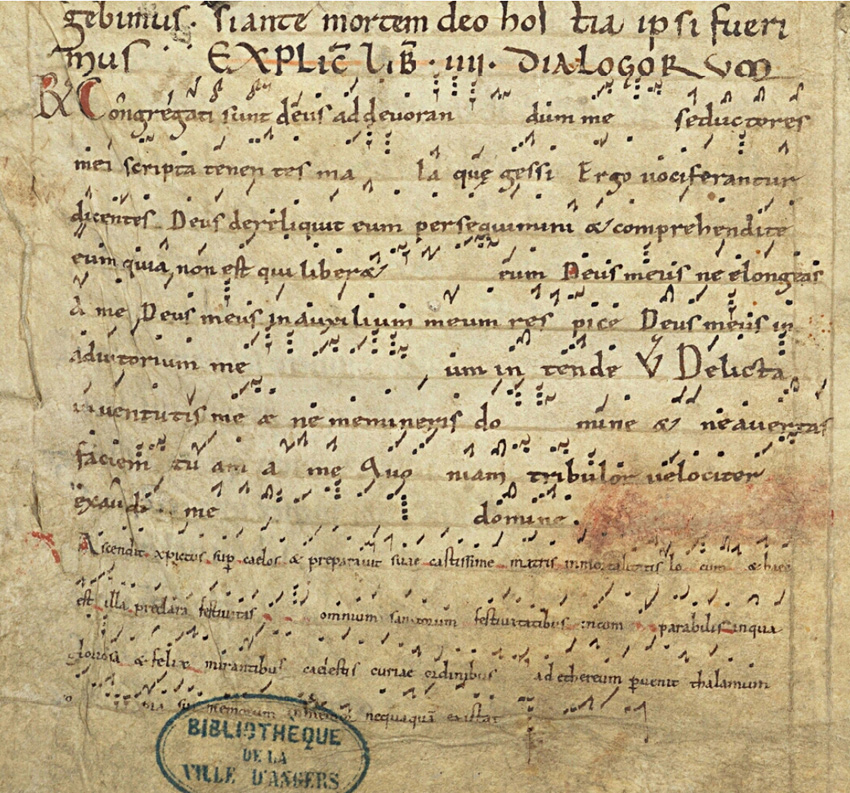 gebimus. si ante mortem deo hos tia ipsi fueri
mus EXPLIC̄ LIB̄ · IIII · DIALOGOR VM
R̸ Congregati sunt deus ad devoran dum me seductores
mei scripta tenen tes ma la quę gessi Ergo vociferantur
dicentes Deus dereliquit eum persequimini & comprehendite
eum quia non est qui liber& eum Deus meus ne elongeas
A me Deus meus in auxilium meum res pice Deus meus in
adiutorium me um in tende V̸ Delicta
iuventutis me ae ne memineris do mine & ne avertas
faciem tu am a me Quo niam tribulor velociter
exaudi me domine.
Ascendit xpictus sup̱ caelos & preparavit suae castissime matris inmortalitatis lo cum & haec
est illa preclara festivitas omnium sanctorum festivitatibus incom parabilis inqua
gloriosa & felix mirantibus caelestis curiae ordinibus ad ethereum p̱venit thalamum
sui memorum nequaquā existat
BIBLIOTHEQUE
DE LA
VILLE D'ANGERS